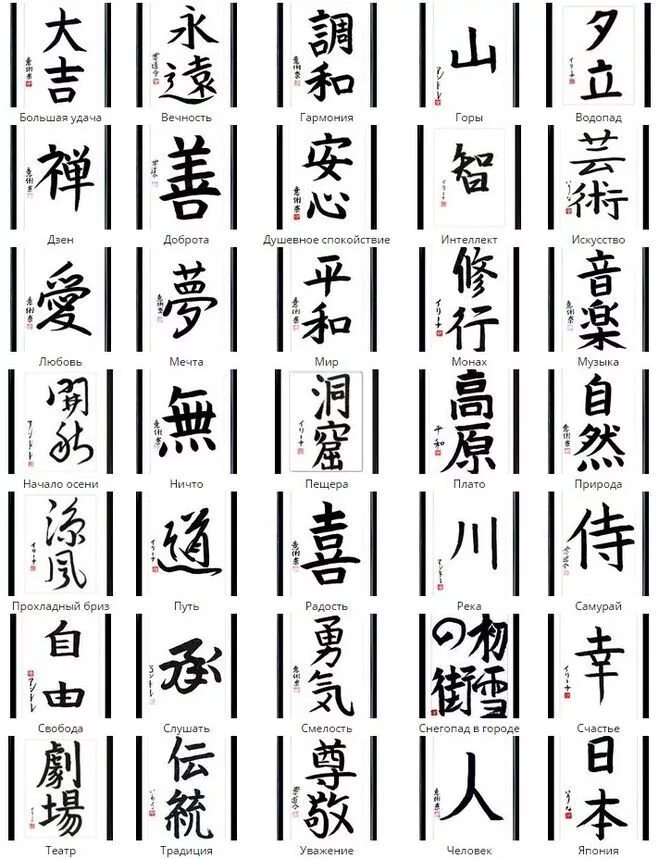 大吉 永遠 調和 山 夕立
Большая удача Вечность Гармония Горы Водопад
禅 善 安心 智 芸術
Дзен Доброта Душевное спокойствие Интеллект Искусство
愛 夢 平和 修行 音楽
Любовь Мечта Мир Монах Музыка
開秋 無 洞窟 高原 自然
Начало осени Ничто Пещера Плато Природа
涼風 道 喜 川 侍
Прохладный бриз Путь Радость Река Самурай
自由 承 勇気 初雪の街 幸
Свобода Слушать Смелость Снегопад в городе Счастье
劇場 伝統 尊敬 人 日本
Театр Традиция Уважение Человек Япония